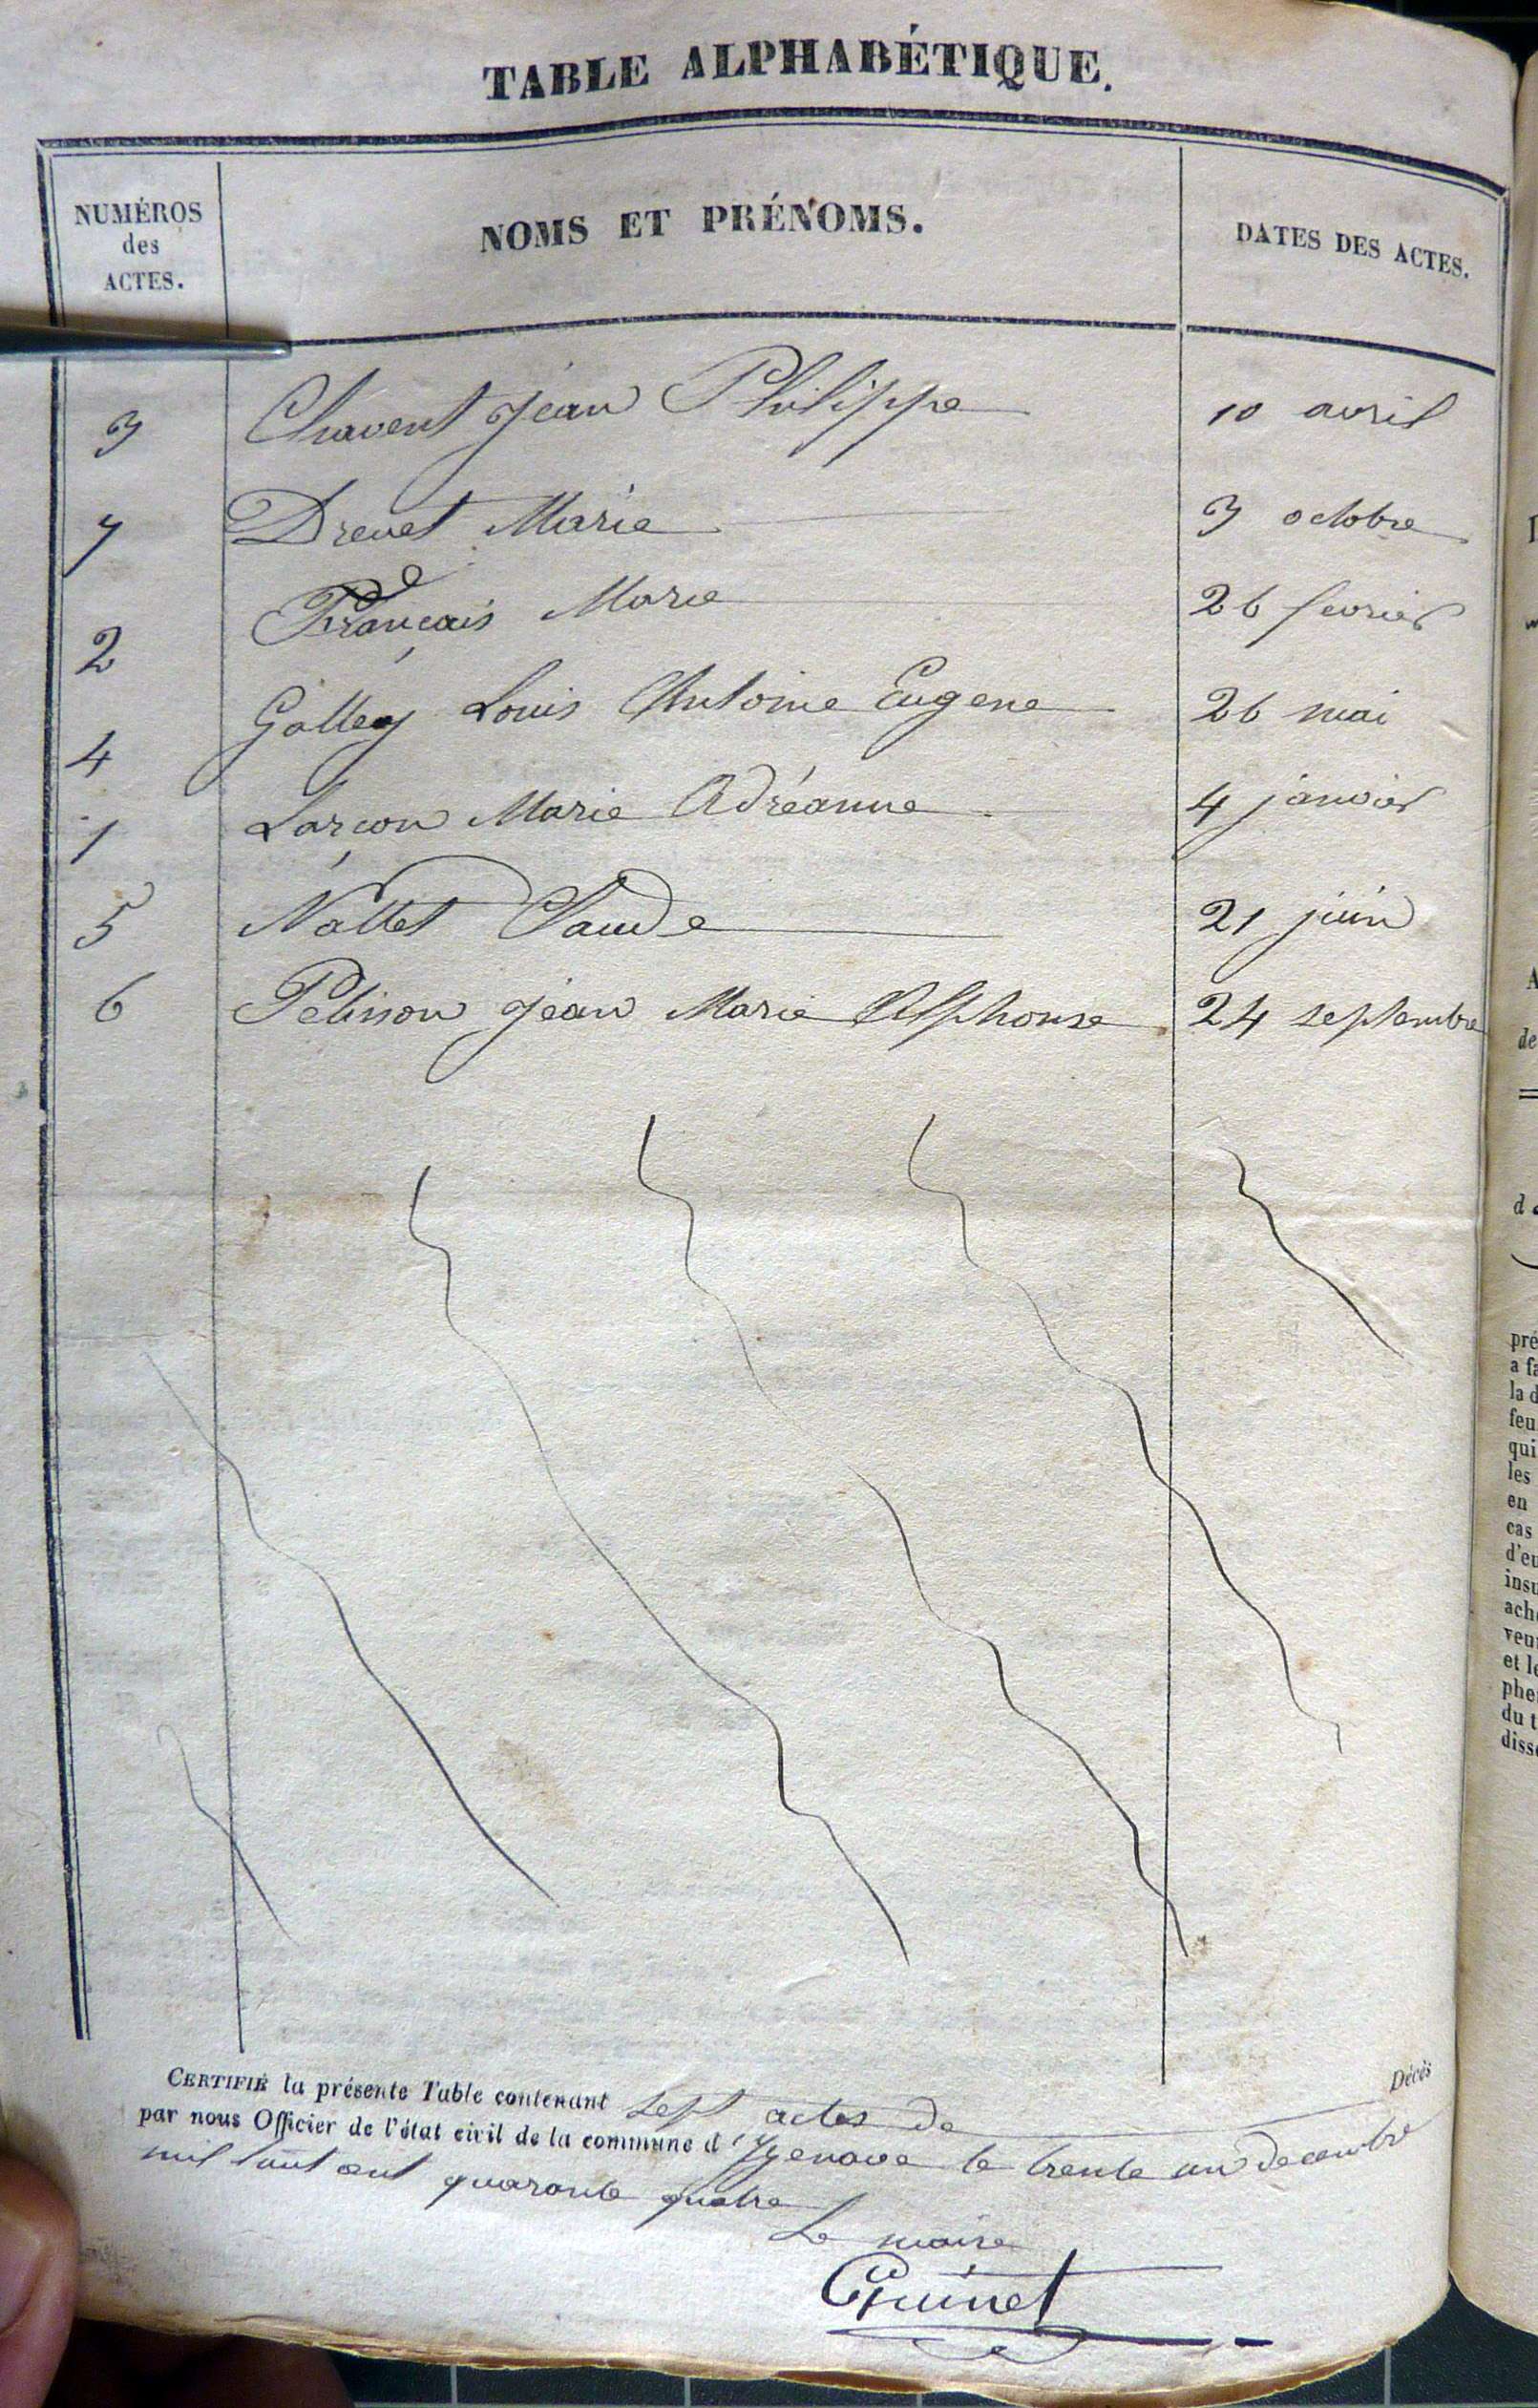 TABLE ALPHABÉTIQUE.
NUMÉROS
des
ACTES.
NOMS ET PRÉNOMS.
DATES DES ACTES.
3 Chavent Jean Philippe 10 avril
7 Drevet Marie 3 octobre
2 Français Marie 26 fevrier
4 Galley Louis Antoine Eugene 26 mai
1 Larçon Marie Adréanne 4 janvier
5 Nallet Claude 21 juin
6 Pelisson Jean Marie Alphonse 24 septembre
CERTIFIÉ la présente Table contenant sept actes de Décès
par nous Officier de l'état civil de la commune d' le trente un decembre
mil huit cent quarante quatre
Le maire
Guinet